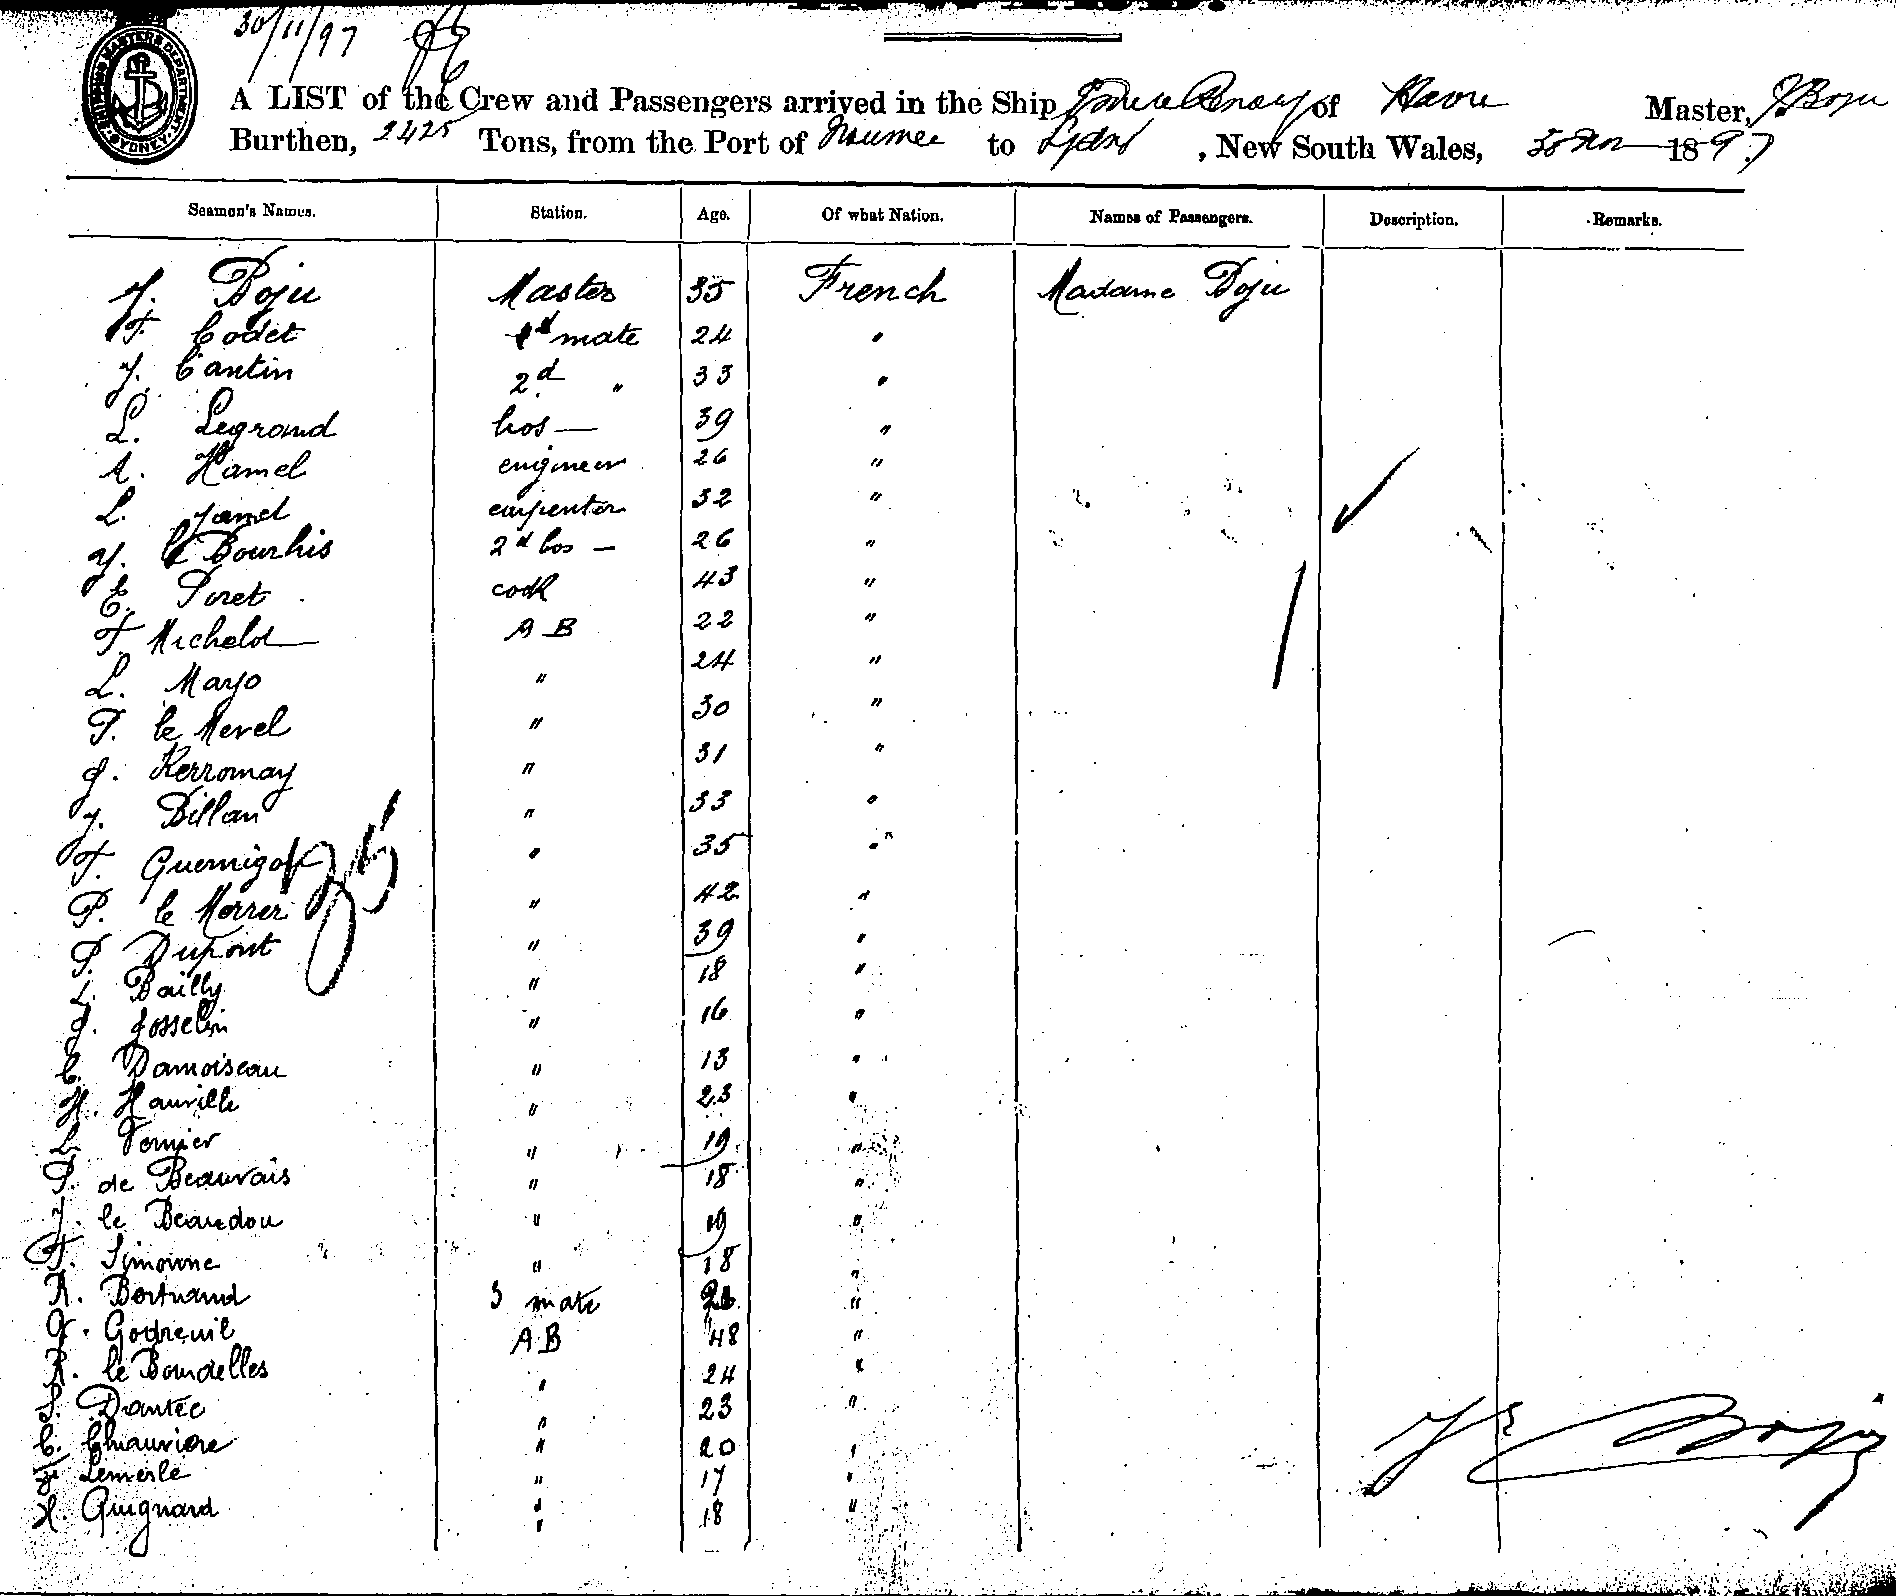 30/11/97
SHIPPING MASTERS DEPARTMENT SYDNEY
A LIST of the Crew and Passengers arrived in the Ship of Havre Master, J Boju
Burthen, 2425 Tons, from the Port of Noumea to Sydney, New South Wales, 30 Nov 1897
Seamen's Names. Station. Age. Of what Nation. Names of Passengers. Description. Remarks.
J. Boju Master 35 French Madame Boju
F. Codet 1st mate 24 "
J. Cantin 2d " 33 "
L. Legrand bos — 39 "
A. Hamel engineer 26 "
L. Jamel carpenter 32 "
Y. le Bourhis 2d bos — 26 "
E. Poret cook 43 "
F. Michelot A B 22 "
L. Mayo " 24 "
P. le Merel " 30 "
J. Kerromay " 31 "
J. Dillan " 33 "
F. Guernigof " 35 "
P. le Merrer " 42 "
P. Dupont " 39 "
L. Bailly " 18 "
J. Josselin " 16 "
C. Damoiseau " 13 "
H. Hauville " 23 "
L. Vernier " 19 "
P. de Beauvais " 18 "
J. le Beaudou " 19 "
F. Simonne " 18 "
R. Bertrand 3 mate "
G. Godreuil A B 48 "
R. le Bourdelles " 24 "
S. Dantec " 23 "
C. Chauviere " 20 "
Lemesle " 17 "
H. Guignard " 18 "
35
J Boju